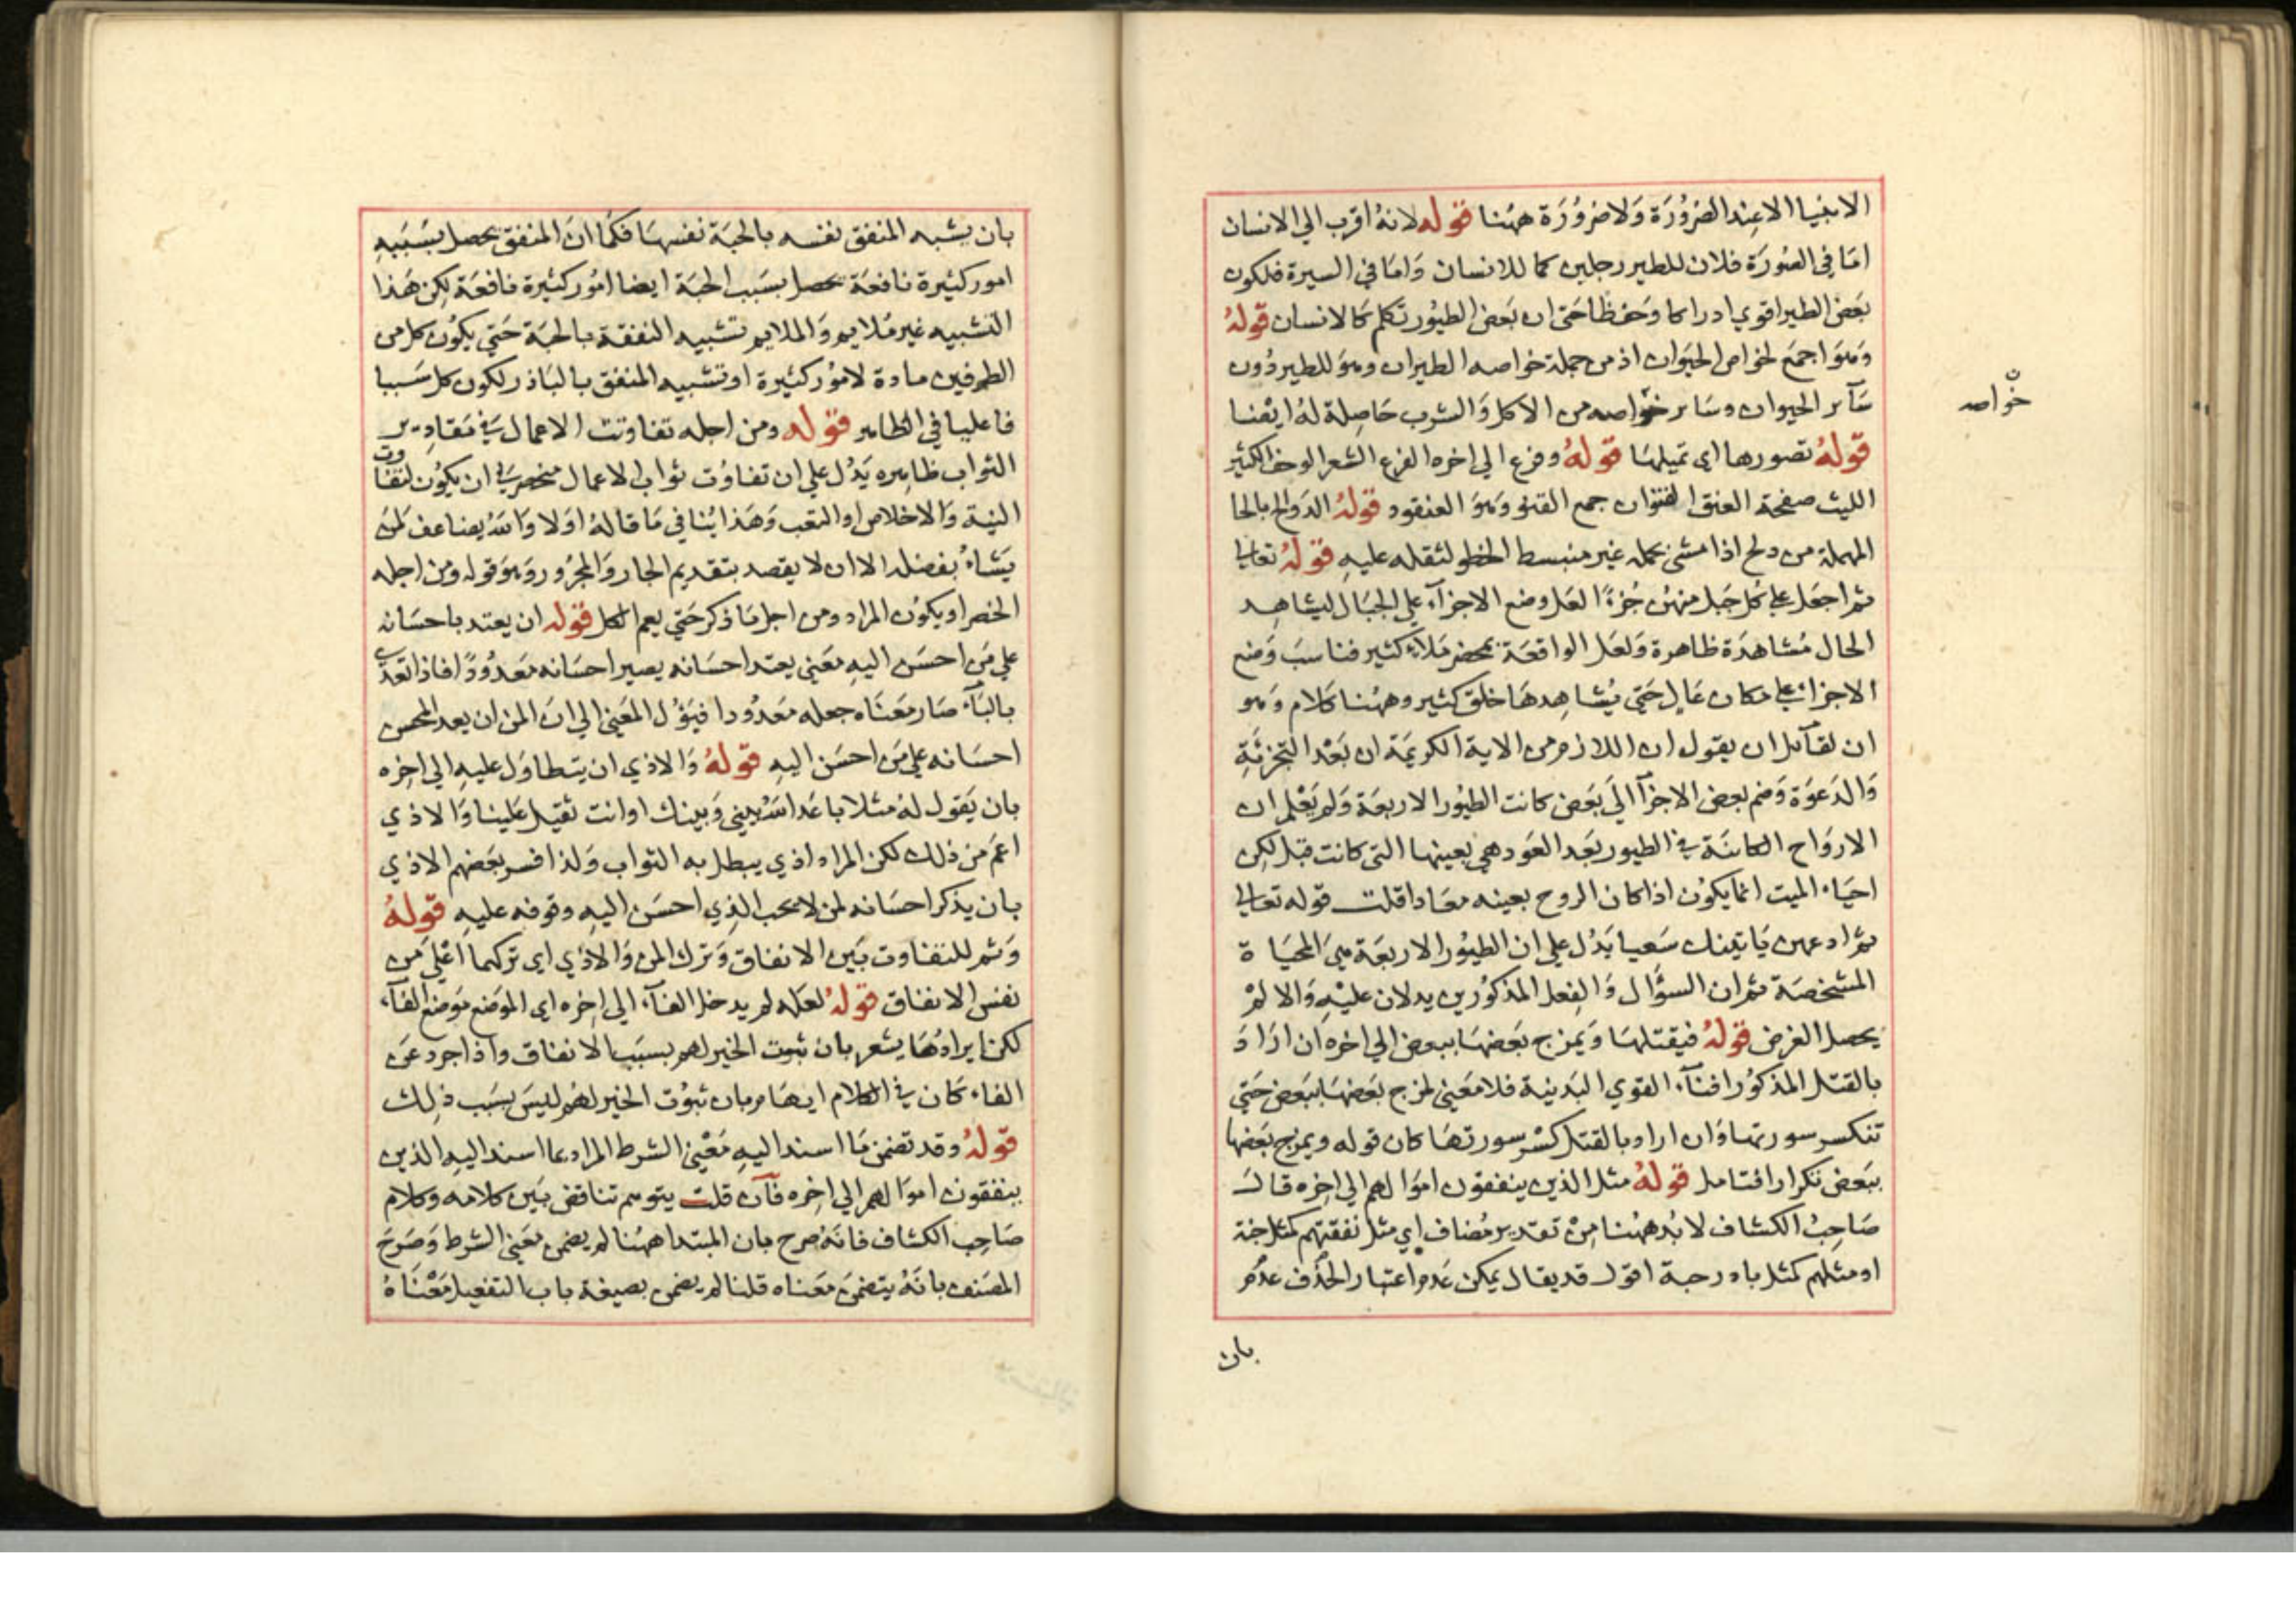 الانبيا الا عند الضرورة ولا ضرورة ههنا قوله لانه اقرب الي الانسان
اما في الصورة فلان للطير رجلين كما للانسان واما في السيرة فلكون
بعض الطير اقوي ادراكا وحفظا حتى ان بعض الطيور تكلم كالانسان قوله
وهو اجمع لخواص الحيوان اذ من جملة خواصه الطيران وهو للطير دون
سآئر الحيوان وسائر خواصه من الاكل والشرب حاصلة له ايضا
خواصه
قوله تصورها اي تميلها قوله وفرع الي اخره الفرع الشعر الوحف الكثير
الليث صفحة العنق القنوان جمع القنو وهو العنقود قوله الدوالح بالحا
المهملة من دلح اذا مشى بحمله غير منبسط الخطو لثقله عليه قوله تعالى
ثم اجعل على كل جبل منهن جزءا لعل وضع الاجزآء علي الجبال ليشاهد
الحال مشاهدة ظاهرة ولعل الواقعة بمحضر ملاء كثير فناسب وضع
الاجزاء على مكان عال حتي يشاهدها خلق كثير وههنا كلام وهو
ان لقآئل ان يقول ان اللازم من الاية الكريمة ان بعد التجزئة
والدعوة وضم بعض الاجزآ الي بعض كانت الطيور الاربعة ولم يعلم ان
الارواح الكائنة في الطيور بعد العود هي بعينها التي كانت قبل لكن
احياء الميت انما يكون اذا كان الروح بعينه معادا قلت قوله تعالى
ثم ادعهن ياتينك سعيا يدل علي ان الطيور الاربعة هي المحياة
المشخصة ثم ان السؤال والفعل المذكورين يدلان عليه والا لم
يحصل الغرض قوله فيقتلها ويمزج بعضها ببعض الي اخره ان اراد
بالقتل المذكور افنآء القوي البدنية فلا معني لمزج بعضها ببعض حتي
تنكسر سورتها وان اراد بالقتل كسر سورتها كان قوله ويمزج بعضها
ببعض تكرارا فتامل قوله مثل الذين ينفقون اموالهم الي اخره قال
صاحب الكشاف لا بد ههنا من تقدير مضاف اي مثل نفقتهم كمثل حبة
او مثلهم كمثل باذر حبة اقول قد يقال يمكن عدم اعتبار الحذف
بان
بان يشبه المنفق نفسه بالحبة نفسها فكما ان المنفق يحصل بسببه
امور كثيرة نافعة يحصل بسبب الحبة ايضا امور كثيرة نافعة لكن هذا
التشبيه غير ملايم والملايم تشبيه النفقة بالحبة حتي يكون كل من
الطرفين مادة لامور كثيرة او تشبيه المنفق بالباذر لكون كل سببا
فاعليا في الظاهر قوله ومن اجله تفاوتت الاعمال في مقادير
الثواب ظاهره يدل علي ان تفاوت ثواب الاعمال منحصر في ان يكون لتفاوت
النية والاخلاص او التعب وهذا ينافي ما قاله اولا والله يضاعف لمن
يشاء بفضله الا ان لا يقصد بتقديم الجار والمجرور وهو قوله ومن اجله
الحصر او يكون المراد ومن اجل ما ذكر حتي يعم الكل قوله ان يعتد باحسانه
علي من احسن اليه معني يعتد احسانه يصير احسانه معدودا فاذا تعدي
بالبآء صار معناه جعله معدودا فيؤل المعني الي ان المن ان يعد المحسن
احسانه علي من احسن اليه قوله والاذي ان يتطاول عليه الي اخره
بان يقول له مثلا باعد الله بيني وبينك او انت ثقيل علينا والاذي
اعم من ذلك لكن المراد اذي يبطل به الثواب ولذا فسر بعضهم الاذي
بان يذكر احسانه لمن لا يحب الذي احسن اليه وقوفه عليه قوله
وثم للتفاوت بين الانفاق وترك المن والاذي اي تركهما اعلي من
نفس الانفاق قوله لعله لم يدخل الفآء الي اخره اي الموضع موضع الفآء
لكن ايرادها يشعر بان ثبوت الخير لهم بسبب الانفاق واذا جرد عن
الفاء كان في الكلام ايهام بان ثبوت الخير لهم ليس بسبب ذلك
قوله وقد تضمن ما اسند اليه معني الشرط المراد بما اسند اليه الذين
ينفقون اموالهم الي اخره فان قلت يتوهم تناقض بين كلامه وكلام
صاحب الكشاف فانه صرح بان المبتدا ههنا لم يضمن معني الشرط وصرح
المصنف بانه يتضمن معناه قلنا لم يضمن بصيغة باب التفعيل معناه